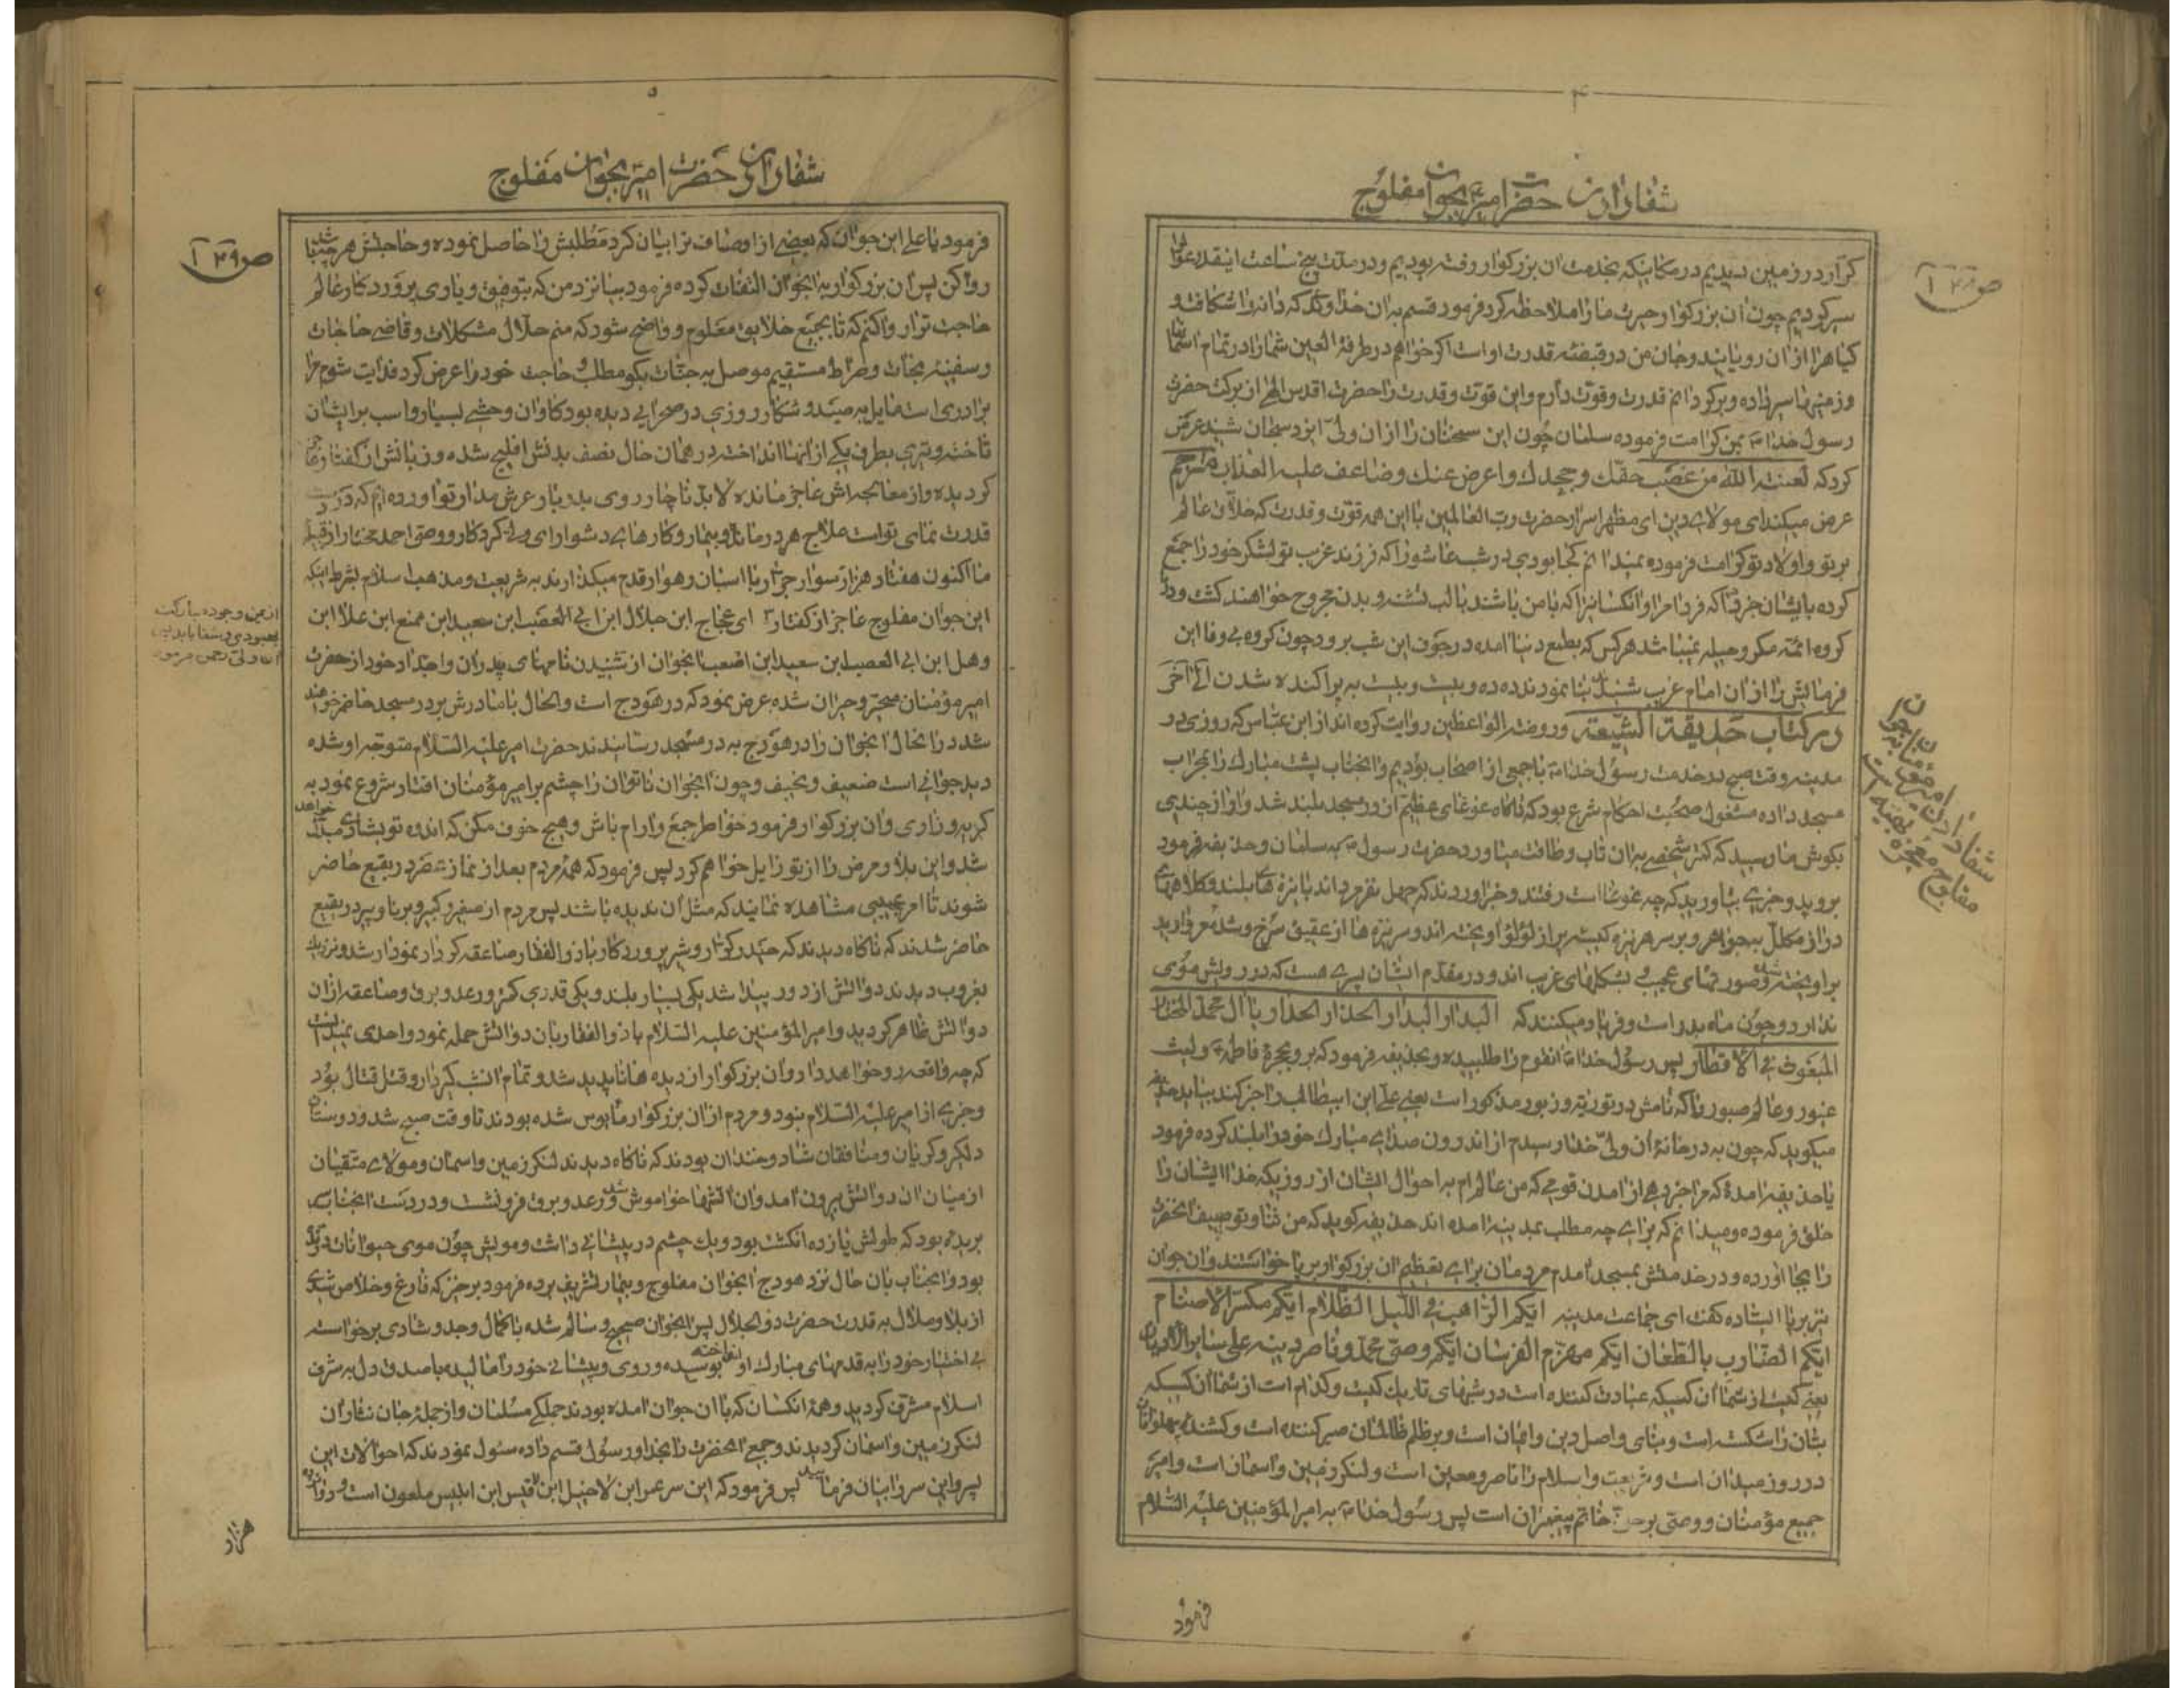 ۴
شفا دادن حضرت امیر بجوان مفلوج
ص۱۴۸
کرّار در زمین دیدیم در مکانیکه بخدمت ان بزرکوار رفته بودیم و در مدّت پنج ساعت اینقدر عوالم
سیر کردیم چون ان بزرکوار حیرت ما را ملاحظه کرد فرمود قسم بدان خداوندی که دانه را شکافته و
کیاهرا از ان رویانیده و جان من در قبضهٔ قدرت او است اکر خواهم در طرفة العین شما را در تمام اسمانها
و زمینها سیر داده و برکردانم قدرت و قوّت دارم و این قوّت و قدرت را حضرت اقدس الهی از برکت حضرت
رسول خدا ص بمن کرامت فرموده سلمان چون این سخنان را از ان ولیّ ایزد سبحان شنید عرض
کرد که لعنة اللّه من غصب حقّک و جحدک و اعرض عنک و ضاعف علیه العذاب مترجم
عرض میکند ای مولای دین ای مظهر اسرار حضرت ربّ العالمین با این همه قوّت و قدرت که خلاّق عالم
بر تو و اولاد تو کرامت فرموده نمیدانم کجا بودی در شب عاشورا که فرزند غریب تو لشکر خود را جمع
کرده بایشان خبر داد که فردا مرا و انکسانیرا که با من باشند با لب تشنه و بدن مجروح خواهند کشت و در
کروه ائمّه مکر و حیله نمیباشد هر کس که بطمع دنیا امده در جوف این شب برود چون کروه بی وفا این
فرمایش را از ان امام غریب شنیدند بنا نمودند ده ده و بیست و بیست به پراکنده شدن الی اخر
در کتاب حدیقة الشّیعه و روضة الواعظین روایت کرده اند از ابن عبّاس که روزی در
مدینه وقت صبح در خدمت رسول خدا ص با جمعی از اصحاب بودیم و انجناب پشت مبارک را بمحراب
مسجد داده مشغول صحبت احکام شرع بود که ناکاه غوغای عظیم از در مسجد بلند شد و اواز چندی
بکوش ما رسید که کمتر شخصی بدان تاب و طاقت میاورد حضرت رسول ص به سلمان و حذیفه فرمود
بروید و خبری بیاورید که چه غوغا است رفتند و خبر اوردند که چهل نفر مردانند با نیزه های بلند و کلاههای
دراز مکلّل بجواهر و بر سر هر نیزه کیسه پر از لؤلؤ اویخته اند و سر نیزه ها از عقیق سرخ و شدّهٔ مروارید
براویخته شده و صورتهای عجیب و بشکلهای غریب اند و در مقدّم ایشان پسری هست که در رویش موی
ندارد و چون ماه بدر است و فریاد میکنند که البدار البدار الحذار الحذار یا ال محمّد المختار
المبعوث فی الاقطار پس رسول خدا ص انقوم را طلبیده و بحذیفه فرمود که برو بحجرهٔ فاطمه ع و لیث
غیور و عالم صبور را که نامش در توریة و زبور مذکور است یعنی علی ابن ابیطالب را خبر کن بیاید حذیفه
میکوید که چون به در خانهٔ ان ولیّ خدا رسیدم از اندرون صدای مبارک خود را بلند کرده فرمود
یا حذیفه امدهٔ که مرا خبر دهی از امدن قومی که من عالم ام به احوال ایشان از روزیکه خدا ایشان را
خلق فرموده و میدانم که برای چه مطلب بمدینه امده اند حذیفه کوید که من ثنا و توصیف انحضرت
را بجا اورده و در خدمتش بمسجد امدم مردمان برای تعظیم ان بزرکوار برپا خواستند و ان جوان
نیز برپا ایستاده کفت ای جماعت مدینه ایّکم الرّاهب فی اللّیل الظّلام ایّکم مکسّر الاصنام
ایّکم الضّارب بالطّعان ایّکم مهزّم الفرسان ایّکم وصیّ محمّد و ناصر دینه علی سایر الادیان
یعنی کیست از شما ان کسیکه عبادت کننده است در شبهای تاریک کیست و کدام است از شما ان کسیکه
بتان را شکسته است و بنای و اصل دین و ایمان است و بر ظلم ظالمان صبر کننده است و کشندهٔ پهلوانان
در روز میدان است و شریعت و اسلام را ناصر و معین است و لنکر زمین و اسمان است و امیر
جمیع مؤمنان و وصیّ برحق خاتم پیغمبران است پس رسول خدا ص به امیر المؤمنین علیه السّلام
فرمود
شفا دادن امیر مؤمنان بجوان
مفلوج معجزه بقیه است
۵
شفا دادن حضرت امیر بجوان مفلوج
ص۱۴۹
فرمود یا علی این جوان که بعضی از اوصاف ترا بیان کرد مطلبش را حاصل نموده و حاجتش هر چه باشد
روا کن پس ان بزرکوار به انجوان التفات کرده فرمود بیا نزد من که بتوفیق و یاری پروردکار عالم
حاجت ترا روا کنم که تا بجمیع خلایق معلوم و واضح شود که منم حلاّل مشکلات و قاضی حاجات
و سفینهٔ نجات و صراط مستقیم موصل به جنّات بکو مطلب و حاجت خود را عرض کرد فدایت شوم مرا
برادری است مایل به صید و شکار روزی در صحرایی دیده بود کاوان وحشی بسیار و اسب بر ایشان
تاخته و تیری بطرف یکی از انها انداخته در همان حال نصف بدنش افلیج شده و زبانش از کفتار عاجز
کردیده و از معالجه اش عاجز مانده لابدّ ناچار روی بدربار عرش مدار تو اورده ام که در ید
قدرت نمای تو است علاج هر درمانده و بیمار و کارهای دشوار ای ولیّ کردکار و وصیّ احمد مختار از قبیلهٔ
ما اکنون هفتاد هزار سوار جرّار با اسبان رهوار قدم میکذارند به شریعت و مذهب اسلام بشرط اینکه
این جوان مفلوج عاجز از کفتار ای عجاج ابن حلال ابن ابی العصب ابن سعید ابن ممنع ابن علا ابن
وهل ابن ابی العصیب ابن سعید ابن اصعب انجوان از شنیدن نامهای پدران و اجداد خود از حضرت
امیر مؤمنان متحیّر و حیران شده عرض نمود که در هودج است و الحال با مادرش بر در مسجد حاضر خواهند
شد در انحال انجوان را در هودج به در مسجد رسانیدند حضرت امیر علیه السّلام متوجّه او شده
دید جوانی است ضعیف و نحیف و چون انجوان ناتوان را چشم بر امیر مؤمنان افتاد شروع نمود به
کریه و زاری و ان بزرکوار فرمود خواطر جمع و ارام باش و هیچ خوف مکن که اندوه تو بشادی مبدّل خواهد
شد و این بلا و مرض را از تو زایل خواهم کرد پس فرمود که همه مردم بعد از نماز عصر در بقیع حاضر
شوند تا امر عجیبی مشاهده نمایند که مثل ان ندیده باشند پس مردم از صغیر و کبیر و برنا و پیر در بقیع
حاضر شدند که ناکاه دیدند که حیدر کرّار و شیر پروردکار با ذوالفقار صاعقه کردار نمودار شد و نزدیک
بغروب دیدند دو اتش از دور پیدا شد یکی بسیار بلند و یکی قدری کمتر و رعد و برق و صاعقه از ان
دو اتش ظاهر کردید و امیر المؤمنین علیه السّلام با ذوالفقار بان دو اتش حمله نمود و احدی نمیدانست
که چه واقعه رو خواهد داد و ان بزرکوار از دیده ها ناپدید شد و تمام انشب کیر و دار و قتل قتال بود
و خبری از امیر علیه السّلام نبود و مردم از ان بزرکوار مأیوس شده بودند تا وقت صبح شد و دوستان
دلکیر و کریان و منافقان شاد و خندان بودند که ناکاه دیدند لنکر زمین و اسمان و مولای متّقیان
از میان ان دو اتش بیرون امد و ان اتشها خواموش شد و رعد و برق فرو نشست و در دست انجناب سر
بریده بود که طولش یازده انکشت بود و یک چشم در پیشانی داشت و مویش چون موی حیوانات درنده
بود و انجناب بان حال نزد هودج انجوان مفلوج و بیمار تشریف برده فرمود برخیز که فارغ و خلاص شدی
از بلا و ملال به قدرت حضرت ذوالجلال پس انجوان صحیح و سالم شده با کمال وجد و شادی برخواسته
بی اختیار خود را به قدمهای مبارک او انداخته بوسیده و روی و پیشانی خود را مالیده با صدق دل به شرف
اسلام مشرّف کردید و همهٔ انکسان که با ان جوان امده بودند جملکی مسلمان و از جملهٔ جان نثاران
لنکر زمین و اسمان کردیدند و جمیع انحضرت را بخدا و رسول قسم داده سئول نمودند که احوالات این
پسر و این سر را بیان فرمائید پس فرمود که این سر عمر ابن لاحیل ابن لاقیس ابن ابلیس ملعون است و دوازده
هزار
از یمن وجود مبارکت
بهبودی و شفا یابد پس